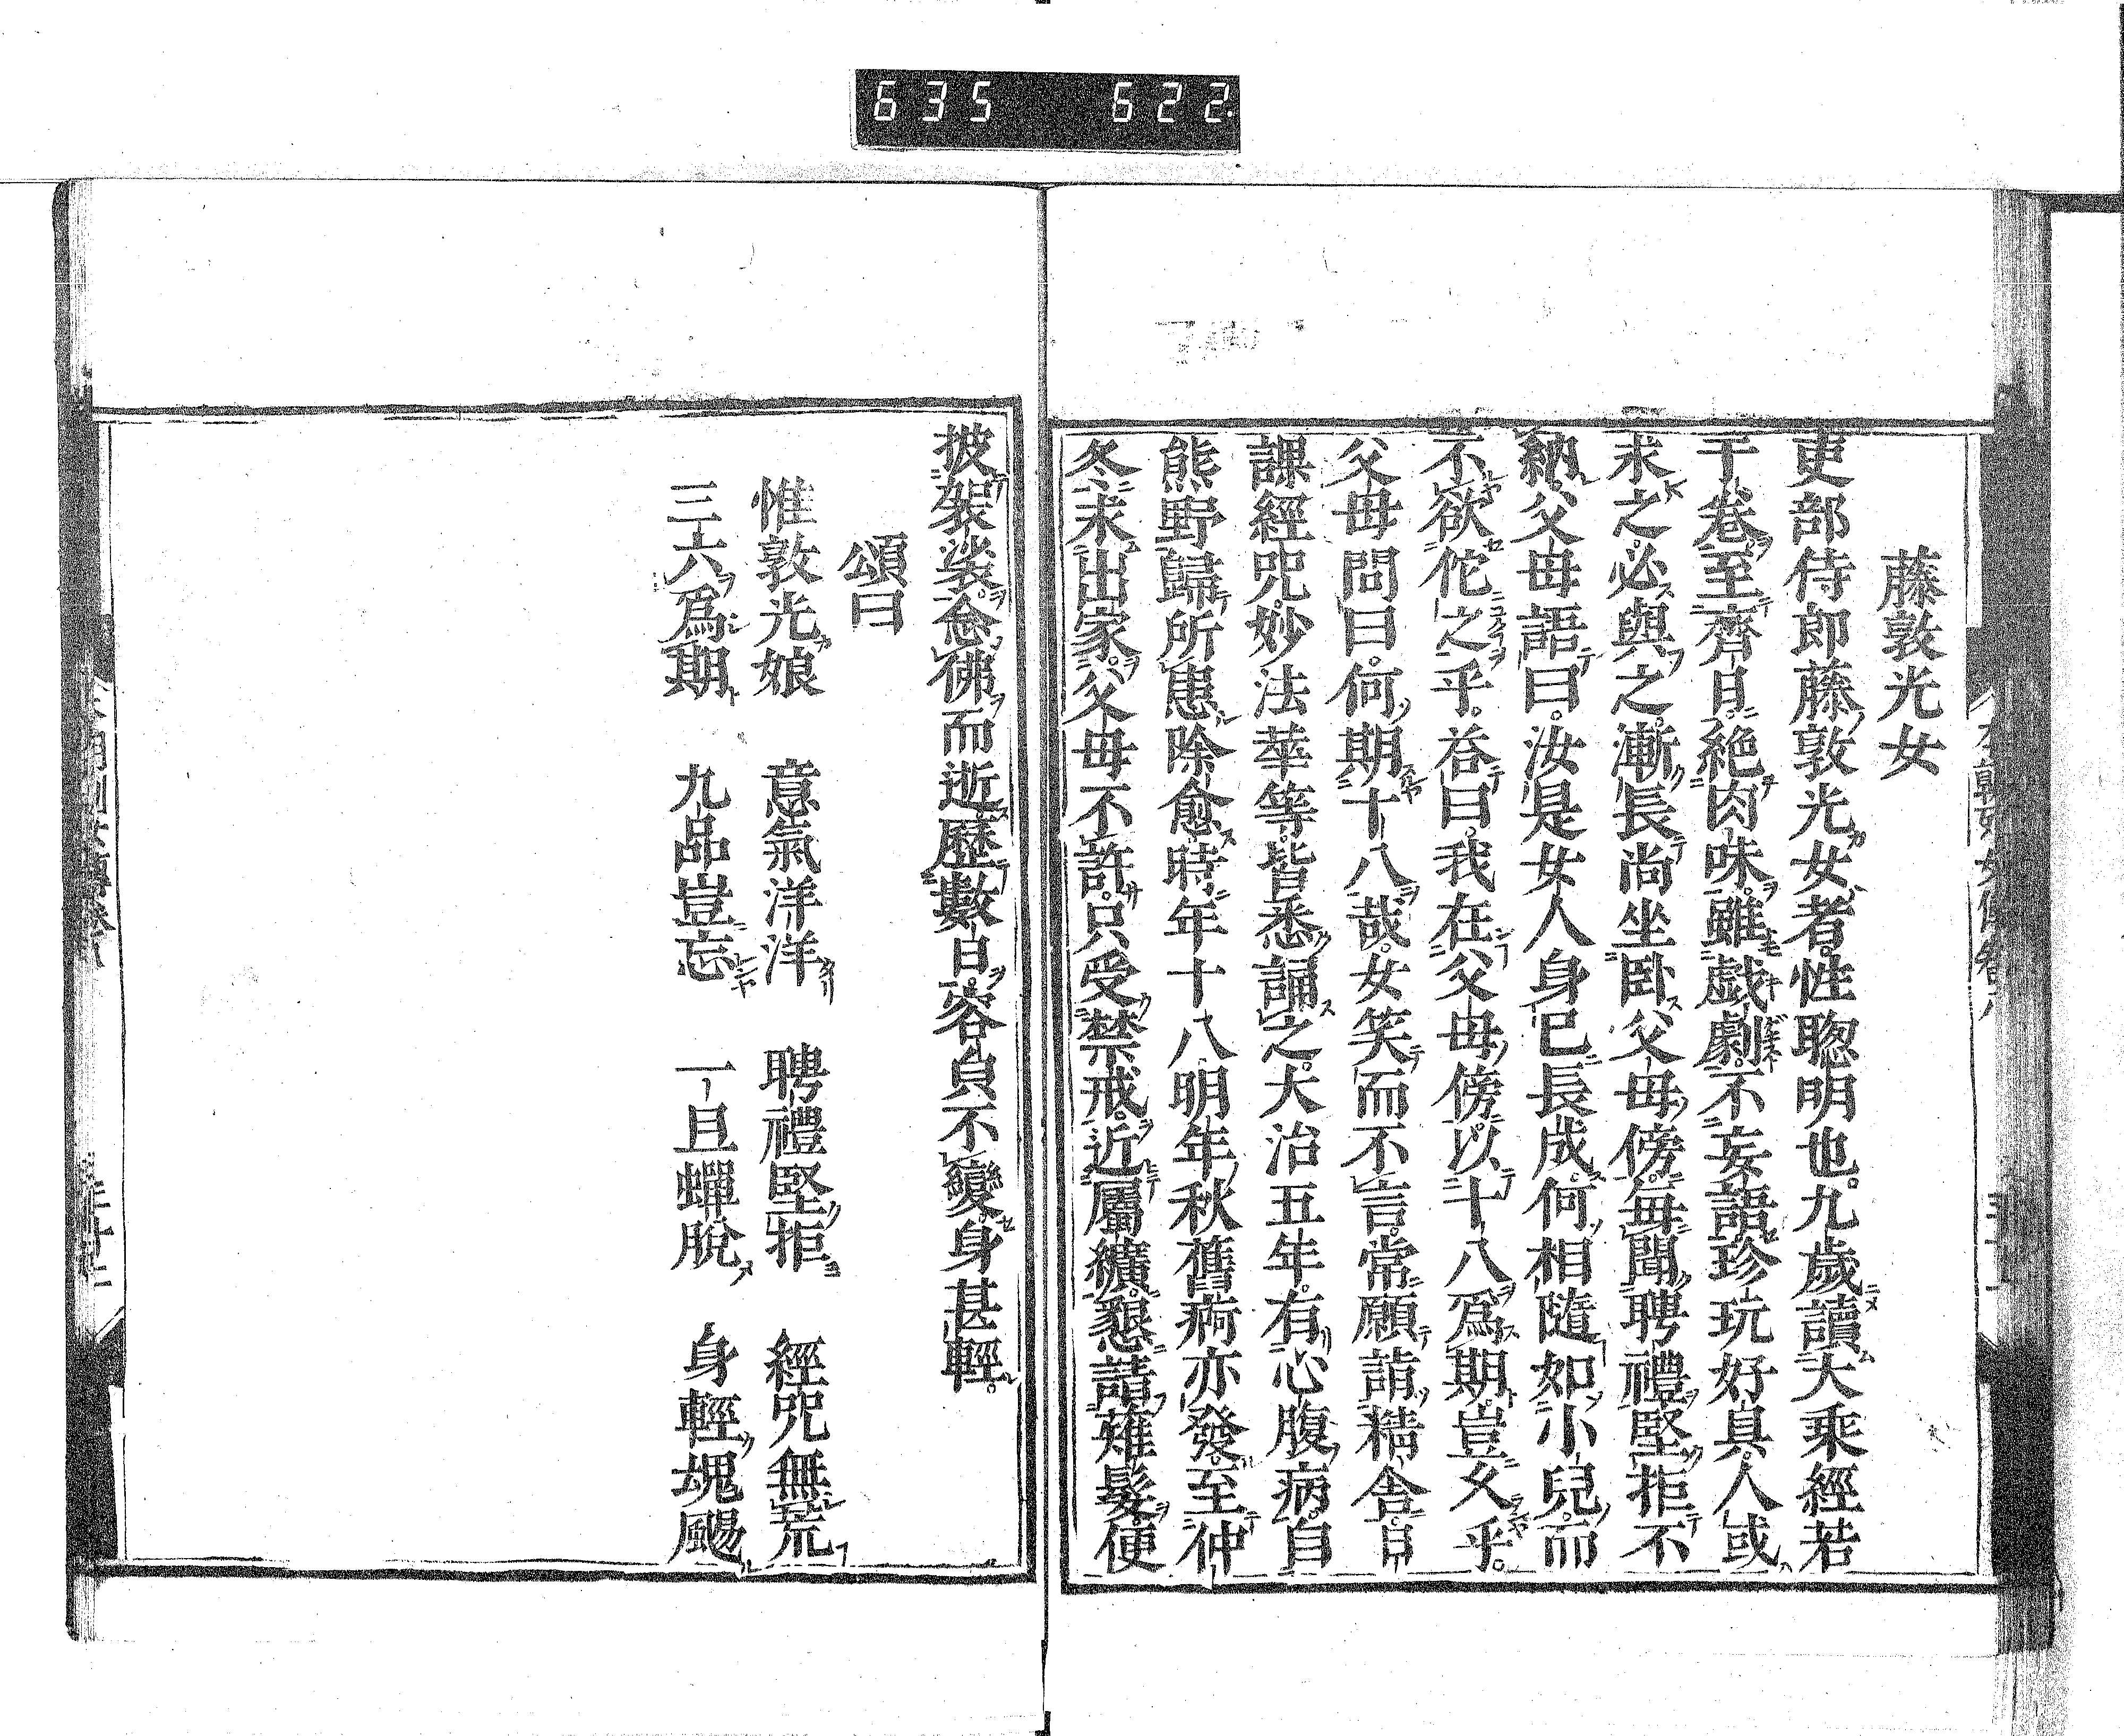 635 622
藤敦光女
吏部侍郎藤敦光女者性聰明也九歲讀大乘經若
干卷至齊日絶肉味雖戲劇不妄語珍玩好具人或
求之必與之漸長尚坐臥父母傍每聞聘禮堅拒不
納父母語曰汝是女人身已長成何相隨如小兒而
不欲佗之乎答曰我在父母傍以十八爲期豈女乎
父母問曰何期十八哉女笑而不言常願請精舍日
課經咒妙法華等皆悉誦之大治五年有心腹病自
熊野歸所患除愈時年十八明年秋舊病亦發至仲
冬求出家父母不許只受禁戒近屬纊懇請薙髮便
披袈裟念佛而逝歷數日容貞不變身甚輕
頌曰
惟敦光娘 意氣洋洋 聘禮堅拒 經咒無荒
三六爲期 九品豈忘 一旦蟬脫 身輕塊颺